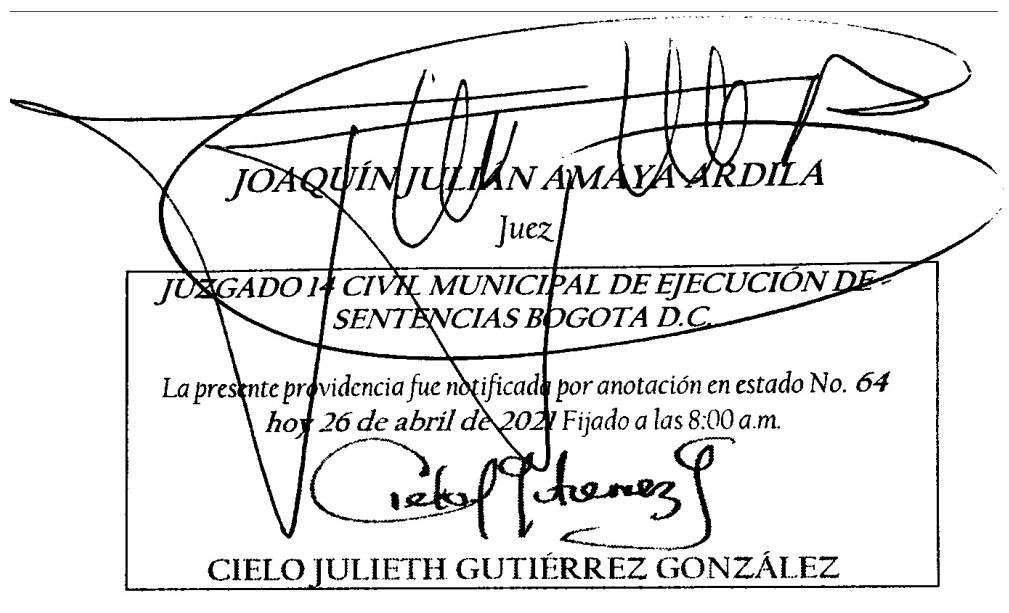 JOAQUÍN JULIÁN AMAYA ARDILA
Juez
JUZGADO 14 CIVIL MUNICIPAL DE EJECUCIÓN DE
SENTENCIAS BOGOTA D.C.
La presente providencia fue notificada por anotación en estado No. 64
hoy 26 de abril de 2021 Fijado a las 8:00 a.m.
Cielo J Gutierrez G
CIELO JULIETH GUTIÉRREZ GONZÁLEZ